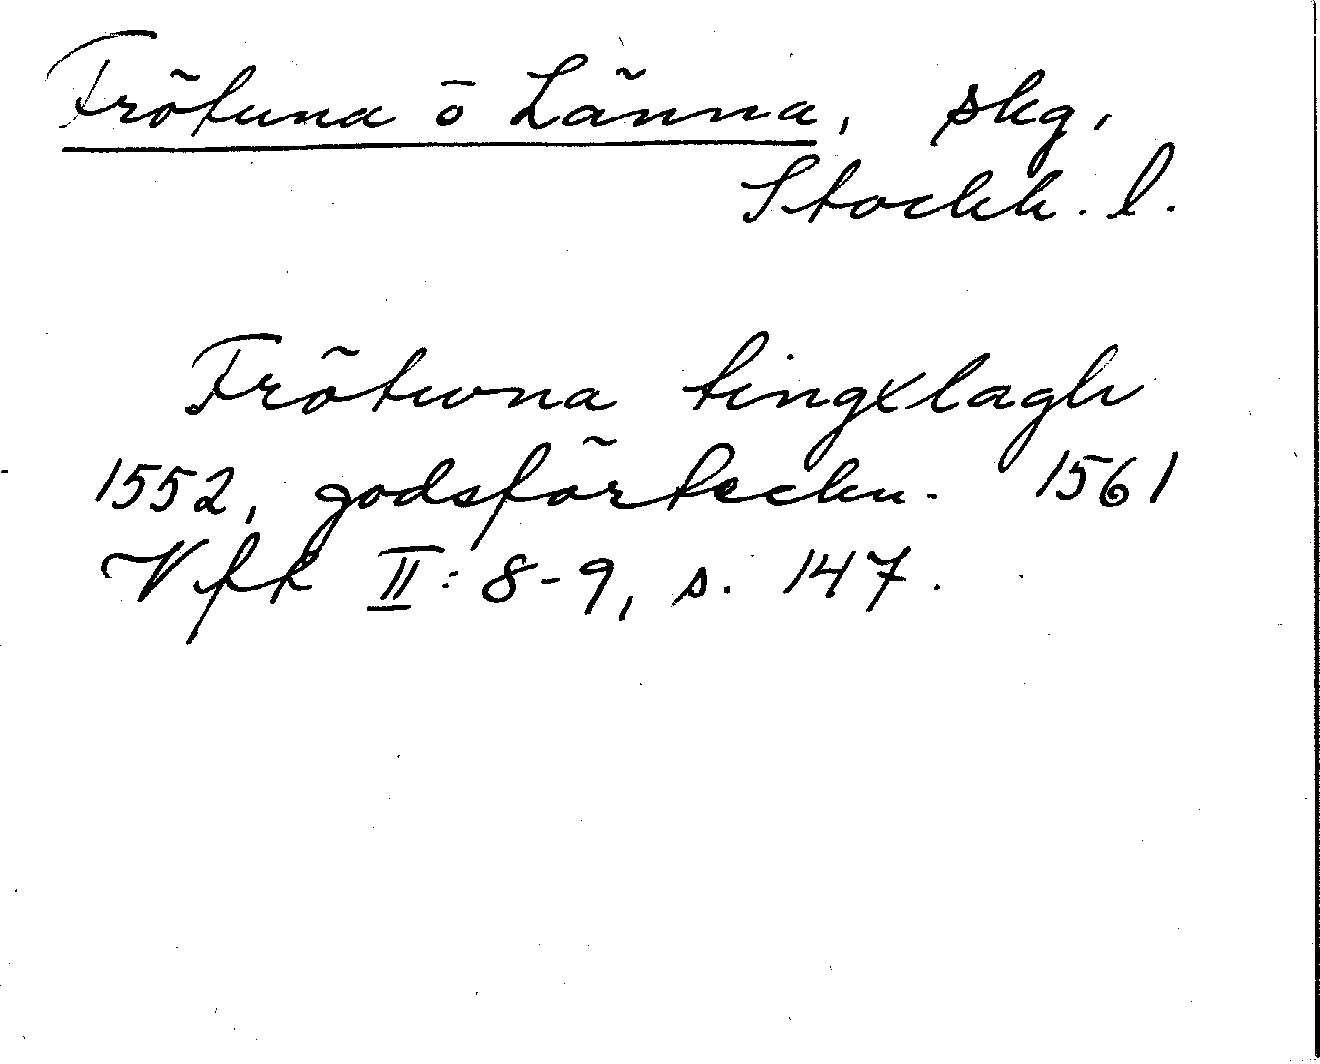 Frötuna ö Länna, skg,
Stockh. l.
Frötwna tingxlagh
1552, godsförteckn. 1561
Vfk II: 8-9, s. 147.